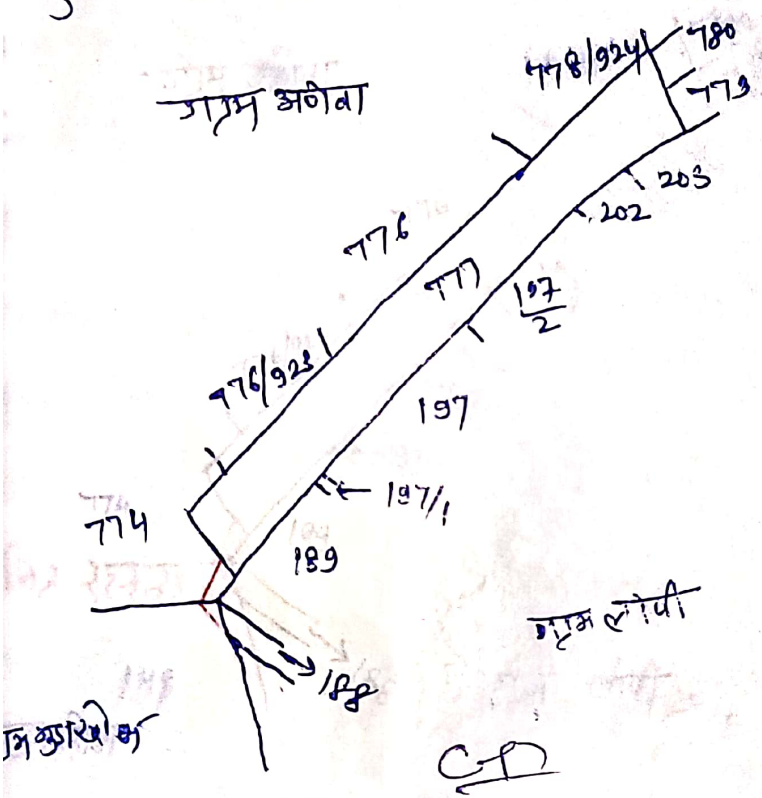 ग्राम अणेवा
778/924
780
773
203
202
776
777
197/2
776/923
197
197/1
774
189
ग्राम लोपी
188